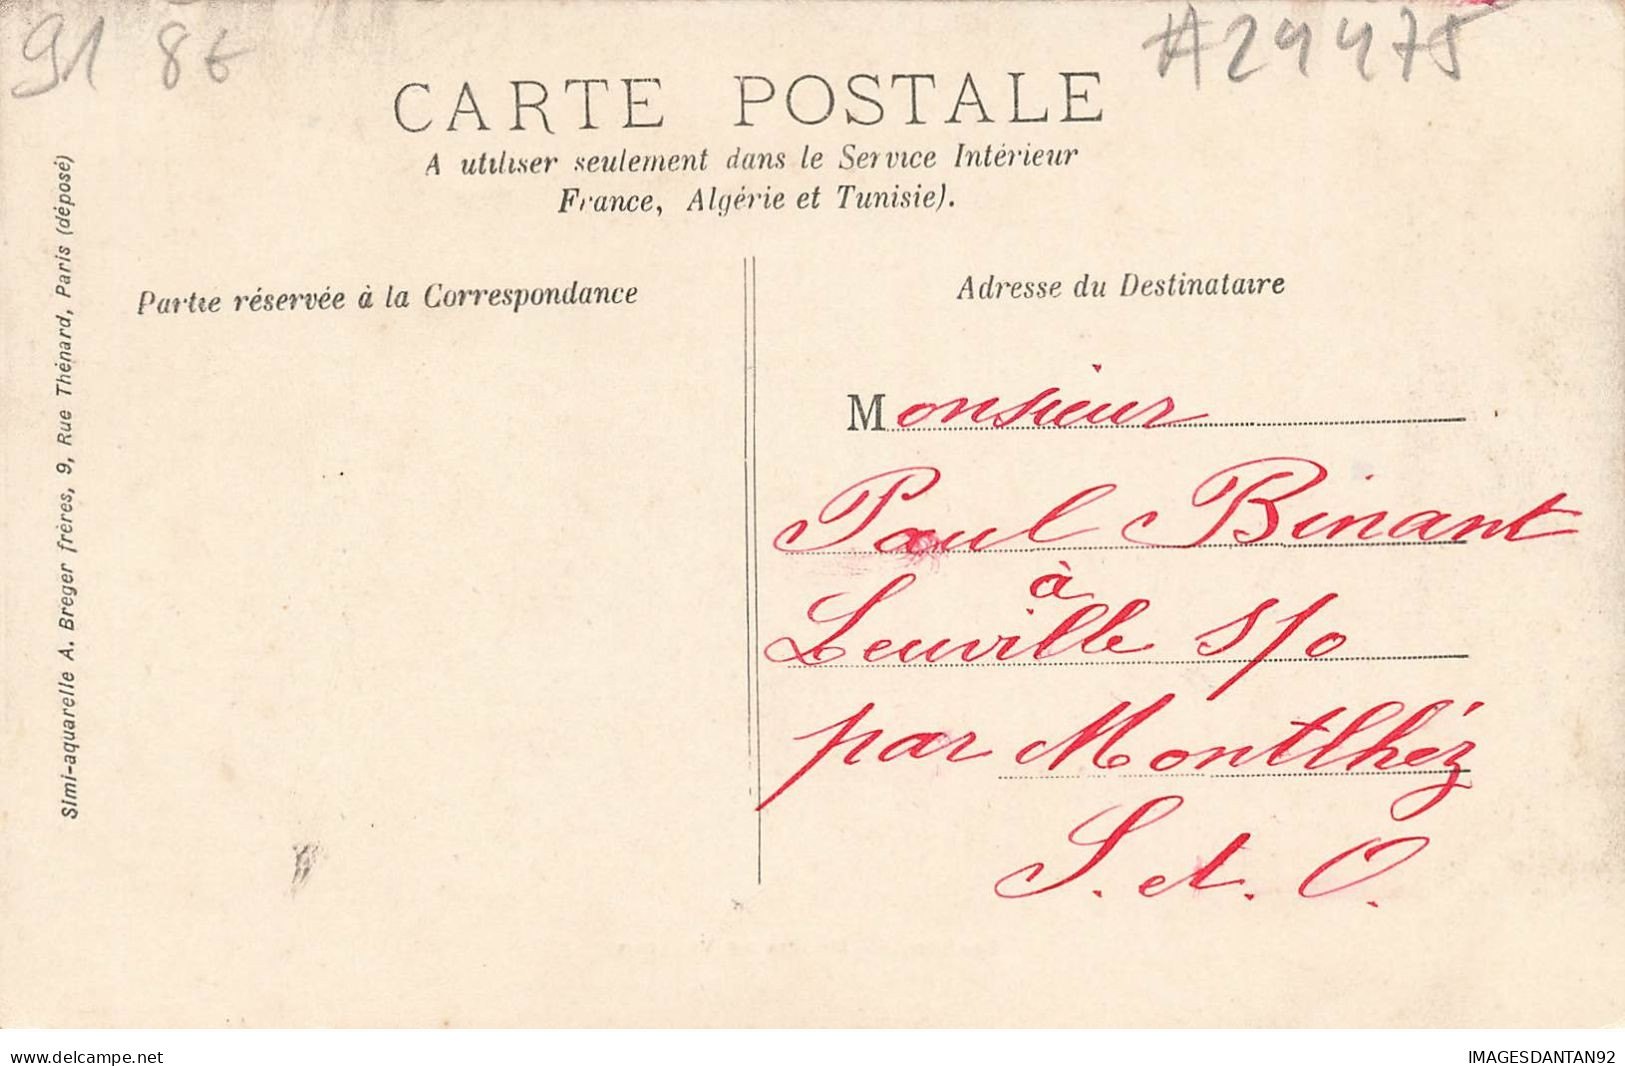 91 8€
#29475
CARTE POSTALE
A utiliser seulement dans le Service Intérieur
France, Algérie et Tunisie).
Simi-aquarelle A. Breger frères, 9, Rue Thénard, Paris (déposé)
Partie réservée à la Correspondance
Adresse du Destinataire
Monsieur
Paul Binant
à
Leuville s/o
par Montlhéry
S. et. O.
www.delcampe.net
IMAGESDANTAN92